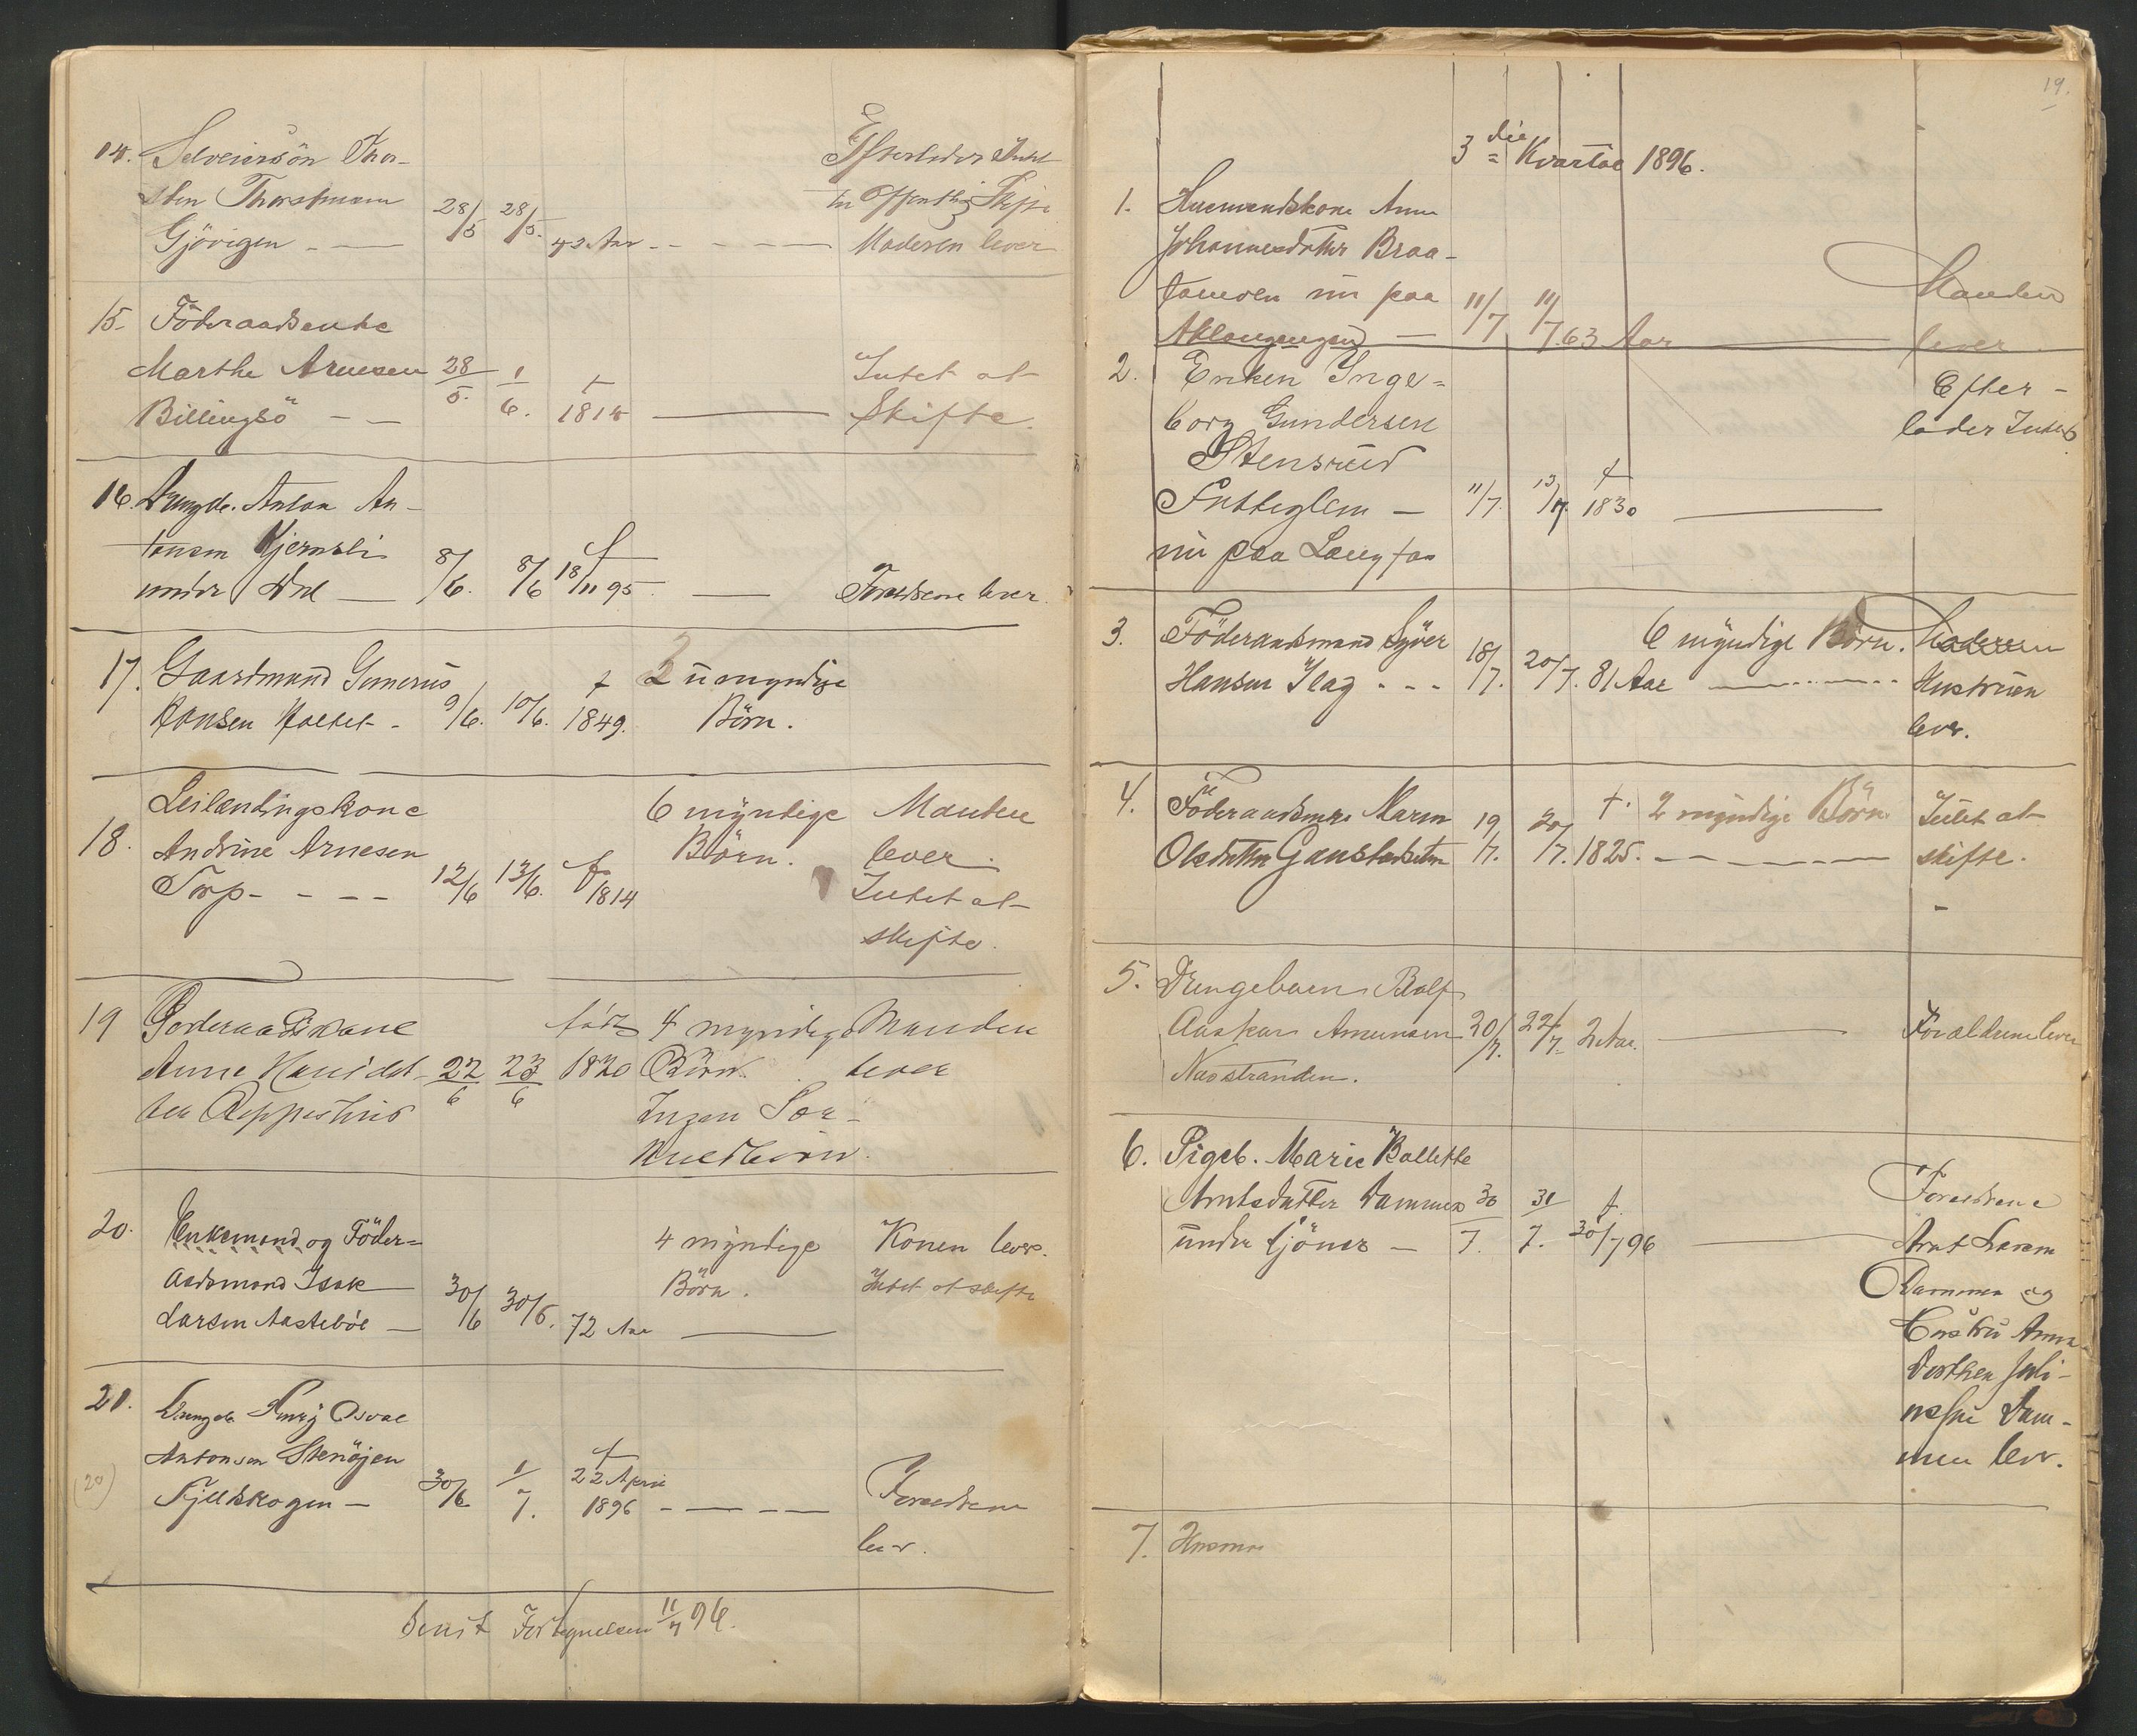 14. Selveiersön Thor-
sten Thorstensen
Gjövigen - — 28/5 28/5. 42 Aar - - - —
Efterlader Intet
til offentlig Skifte
Moderen lever
15. Föderaadsenke
Marthe Arnesen 28/5. 1/6. f
Billingsö - — 1814 —
Intet at
Skifte.
16. Drengeb. Anton An-
tonsen Kjernsli
under — 8/6. 8/6 f 18/11 95. — Foreldrene lever.
17. Gaardmand Gunerius
Hansen Holtet - 9/6. 10/6. f 1849.
2 umyndige
Börn.
18. Leilendingskone
Andrine Arnesen
Torp - - — — 12/6 13/6. f 1814
6 myndige
Börn.
Manden
lever.
Intet at
skifte.
19 Föderaadskone
Anne 22/6 23/6 föd 1820
ter
4 myndige
Börn.
Ingen Sær-
kuldbörn.
Manden
lever
20. Enkemand og Föder-
aadsmand Isak
Larsen Aasteböl — 30/6 30/6. 72 Aar —
4 myndige
Börn.
Konen lever.
Intet at skifte
21. Drengeb. Osval
Antonsen Stenöjen
Fjeldskogen — 30/6 1/7. f 22 April
1896 - — — —
Foreldrene
lever.
(20)
Sent Fortegnelsen 11/7 96.
19.
3die Kvartal 1896.
1. Huusmandskone Anne
Johannesdatter Braa-
tamoen nu paa
— 11/7 11/7. 63 Aar —
Manden
lever.
2. Enken Inge-
borg Gundersen
Stensrud
— 11/7. 13/7. f 1830 —
nu paa
Efter-
lader Intet
3. Föderaadsmand Syver
Hansen Ilag - - - 18/7. 20/7. 81 Aar —
6 myndige Börn.
Moderen
Hustruen
lever.
4. Föderaadsenke Karen
Olsdatter 19/7. 20/7. f. 1825. - — — —
2 myndige Börn
Intet at
skifte.
5. Drengebarn Rolf
Aaskar Amundsen 20/7. 22/7. 2 Aar. —
Nastranden.
Forældrene lever
6. Pigeb. Marie Bollette
Arntsdatter Dammen 30/7. 31/7. f. 30/7 96 —
under Tjöner —
Foreldrene
Arnt Larsen
Dammen og
Hustru Anna
Dorthea Juli-
Dam-
men lever.
7. Husm